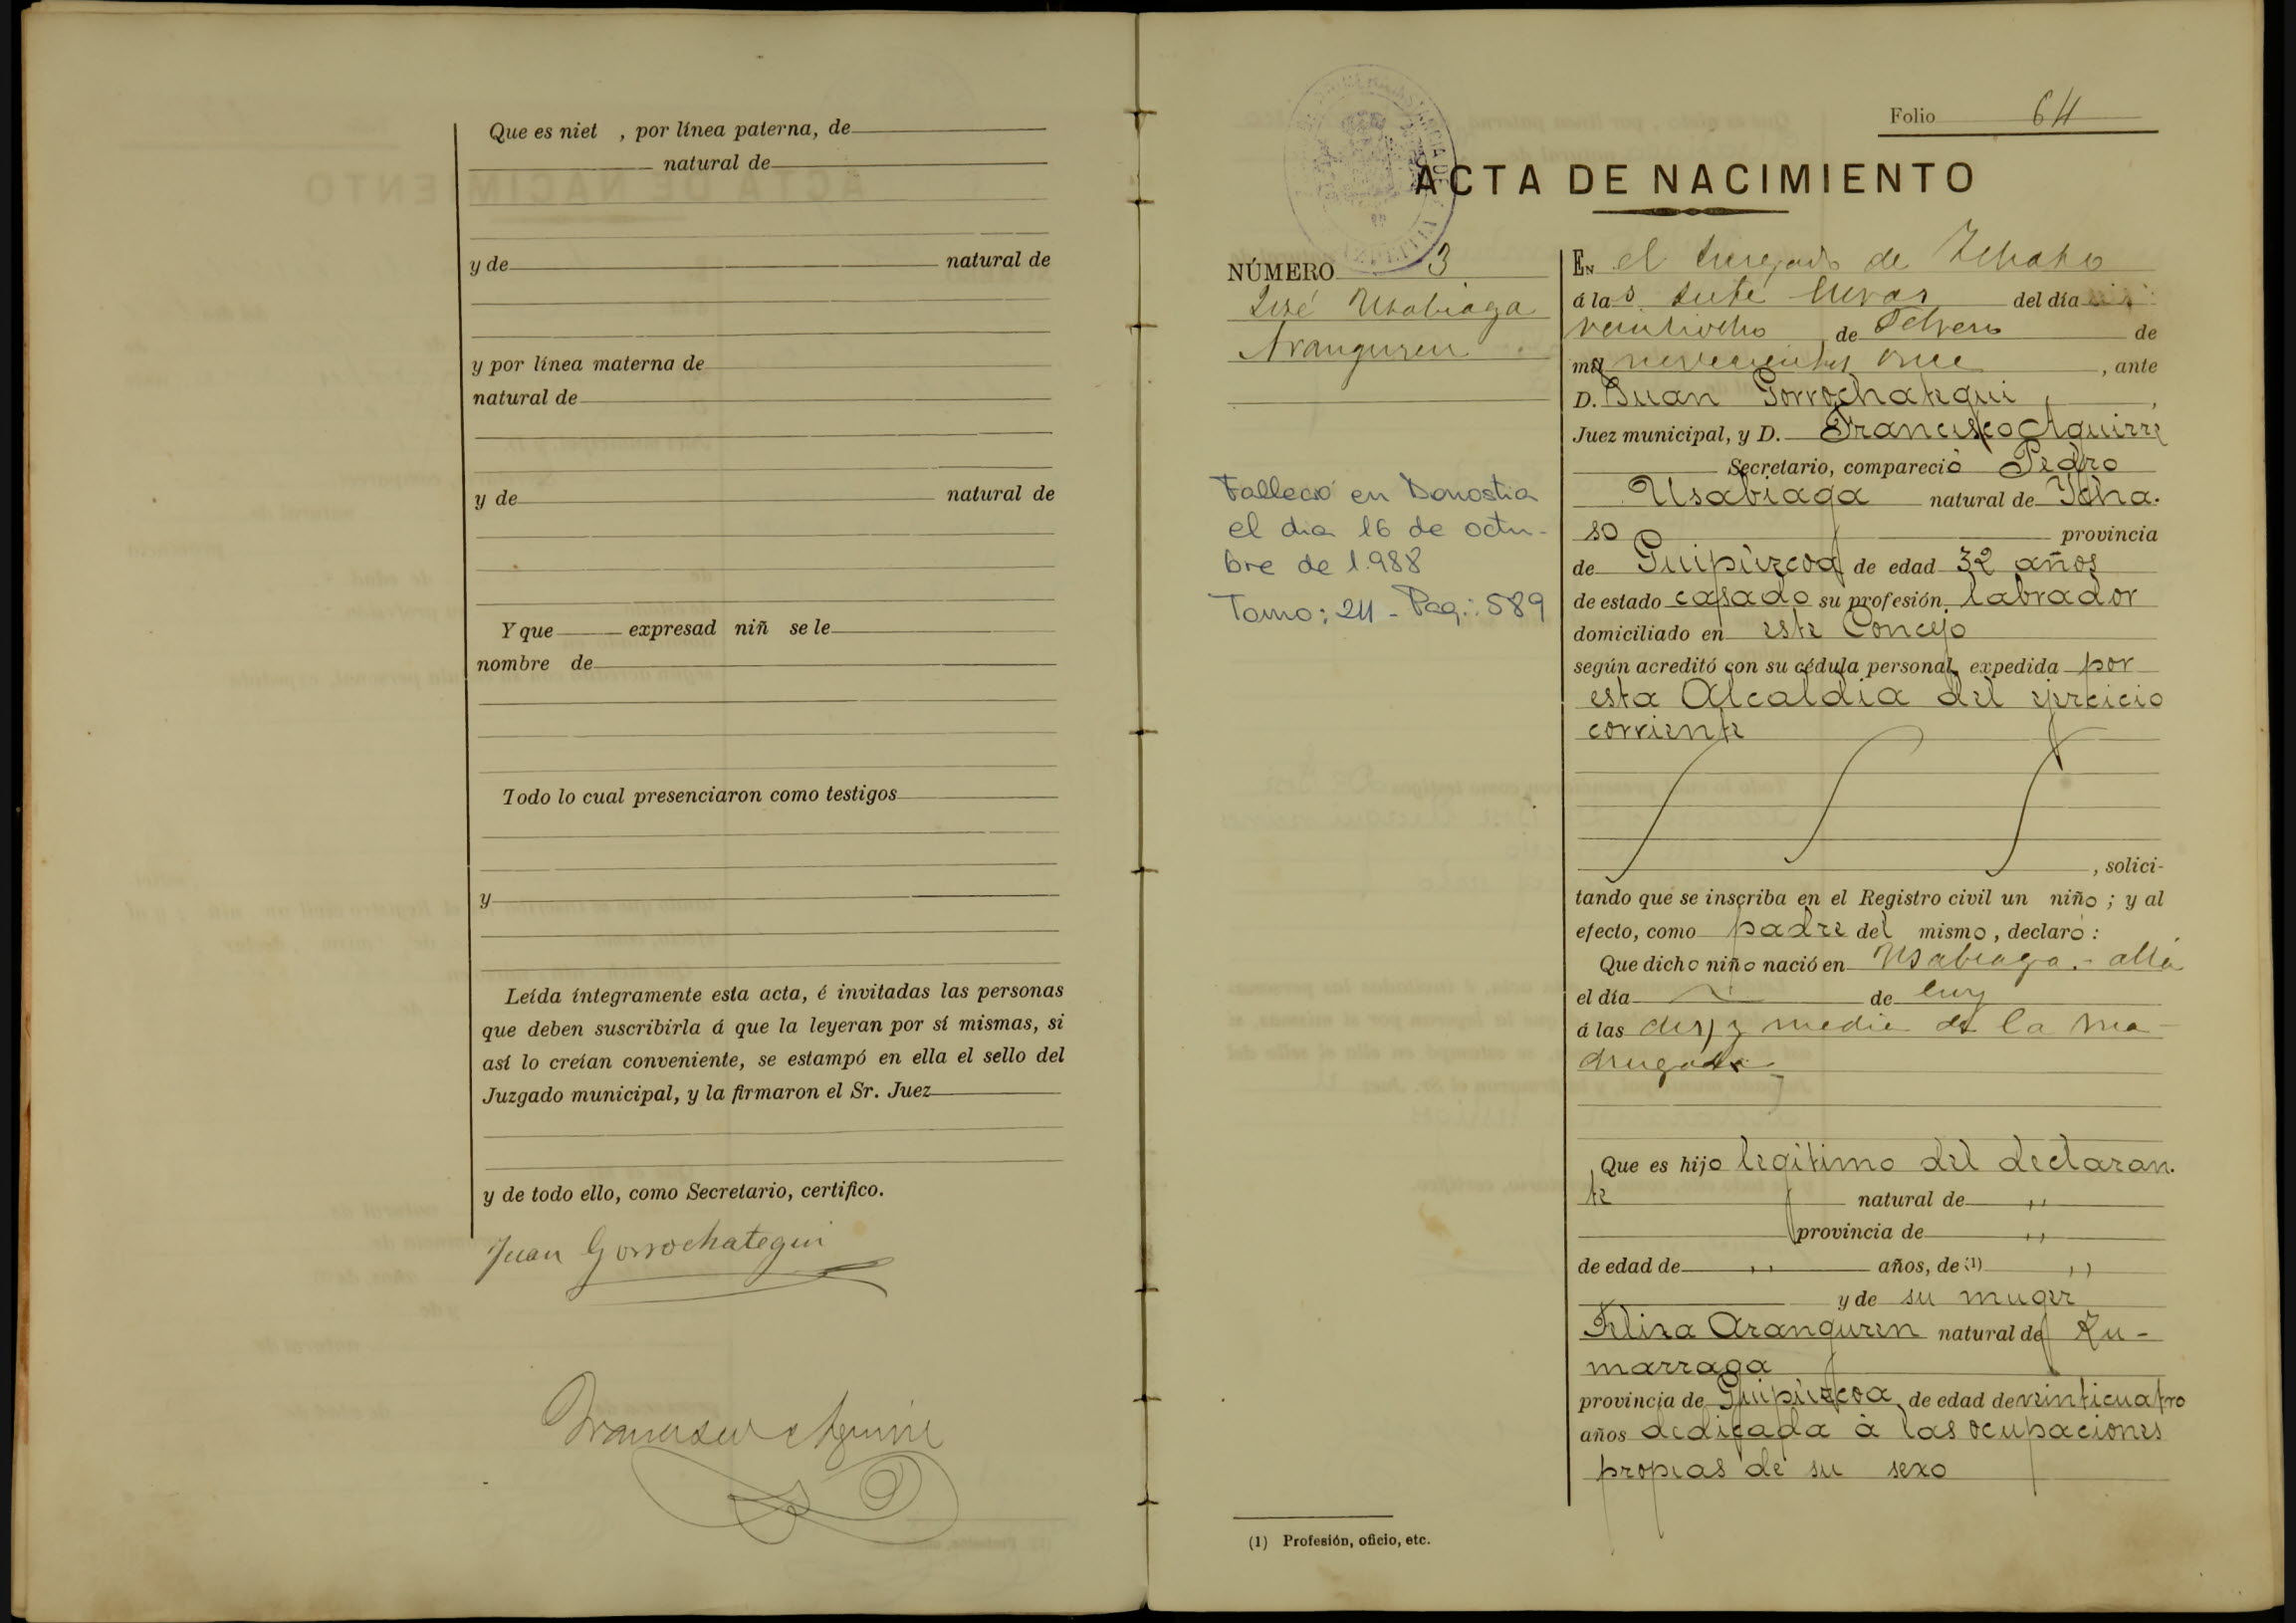 Que es niet , por línea paterna, de
natural de
y de natural de
y por línea materna de
natural de
y de natural de
Y que expresad niñ se le
nombre de
Todo lo cual presenciaron como testigos
y
Leída íntegramente esta acta, é invitadas las personas
que deben suscribirla á que la leyeran por sí mismas, si
así lo creían conveniente, se estampó en ella el sello del
Juzgado municipal, y la firmaron el Sr. Juez
y de todo ello, como Secretario, certifico.
Juan Gorrochategui
Francisco Aguirre
Folio 64
ACTA DE NACIMIENTO
NÚMERO 3
José Usabiaga
Aranguren
Falleció en Donostia
el dia 16 de octu-
bre de 1.988
Tomo: 211 - Pag.: 589
EN el Juzgado de Ichaso
á las siete horas del día
veintiocho de Febrero de
mil novecientos once, ante
D. Juan Gorrochategui,
Juez municipal, y D. Francisco Aguirre
Secretario, compareció Pedro
Usabiaga natural de Icha-
so provincia
de Guipúzcoa de edad 32 años
de estado casado su profesión labrador
domiciliado en este Concejo
según acreditó con su cédula personal expedida por
esta Alcaldia del ejercicio
corriente
, solici-
tando que se inscriba en el Registro civil un niño ; y al
efecto, como padre del mismo, declaró :
Que dicho niño nació en Usabiaga.-
el día de hoy
á las dos y media de la ma-
drugada
Que es hijo legítimo del declaran-
te natural de ,,
provincia de ,,
de edad de ,, años, de (1) ,,
y de su muger
Felisa Aranguren natural de Zu-
marraga
provincia de Guipúzcoa de edad de veinticuatro
años dedicada à las ocupaciones
propias de su sexo
(1) Profesión, oficio, etc.